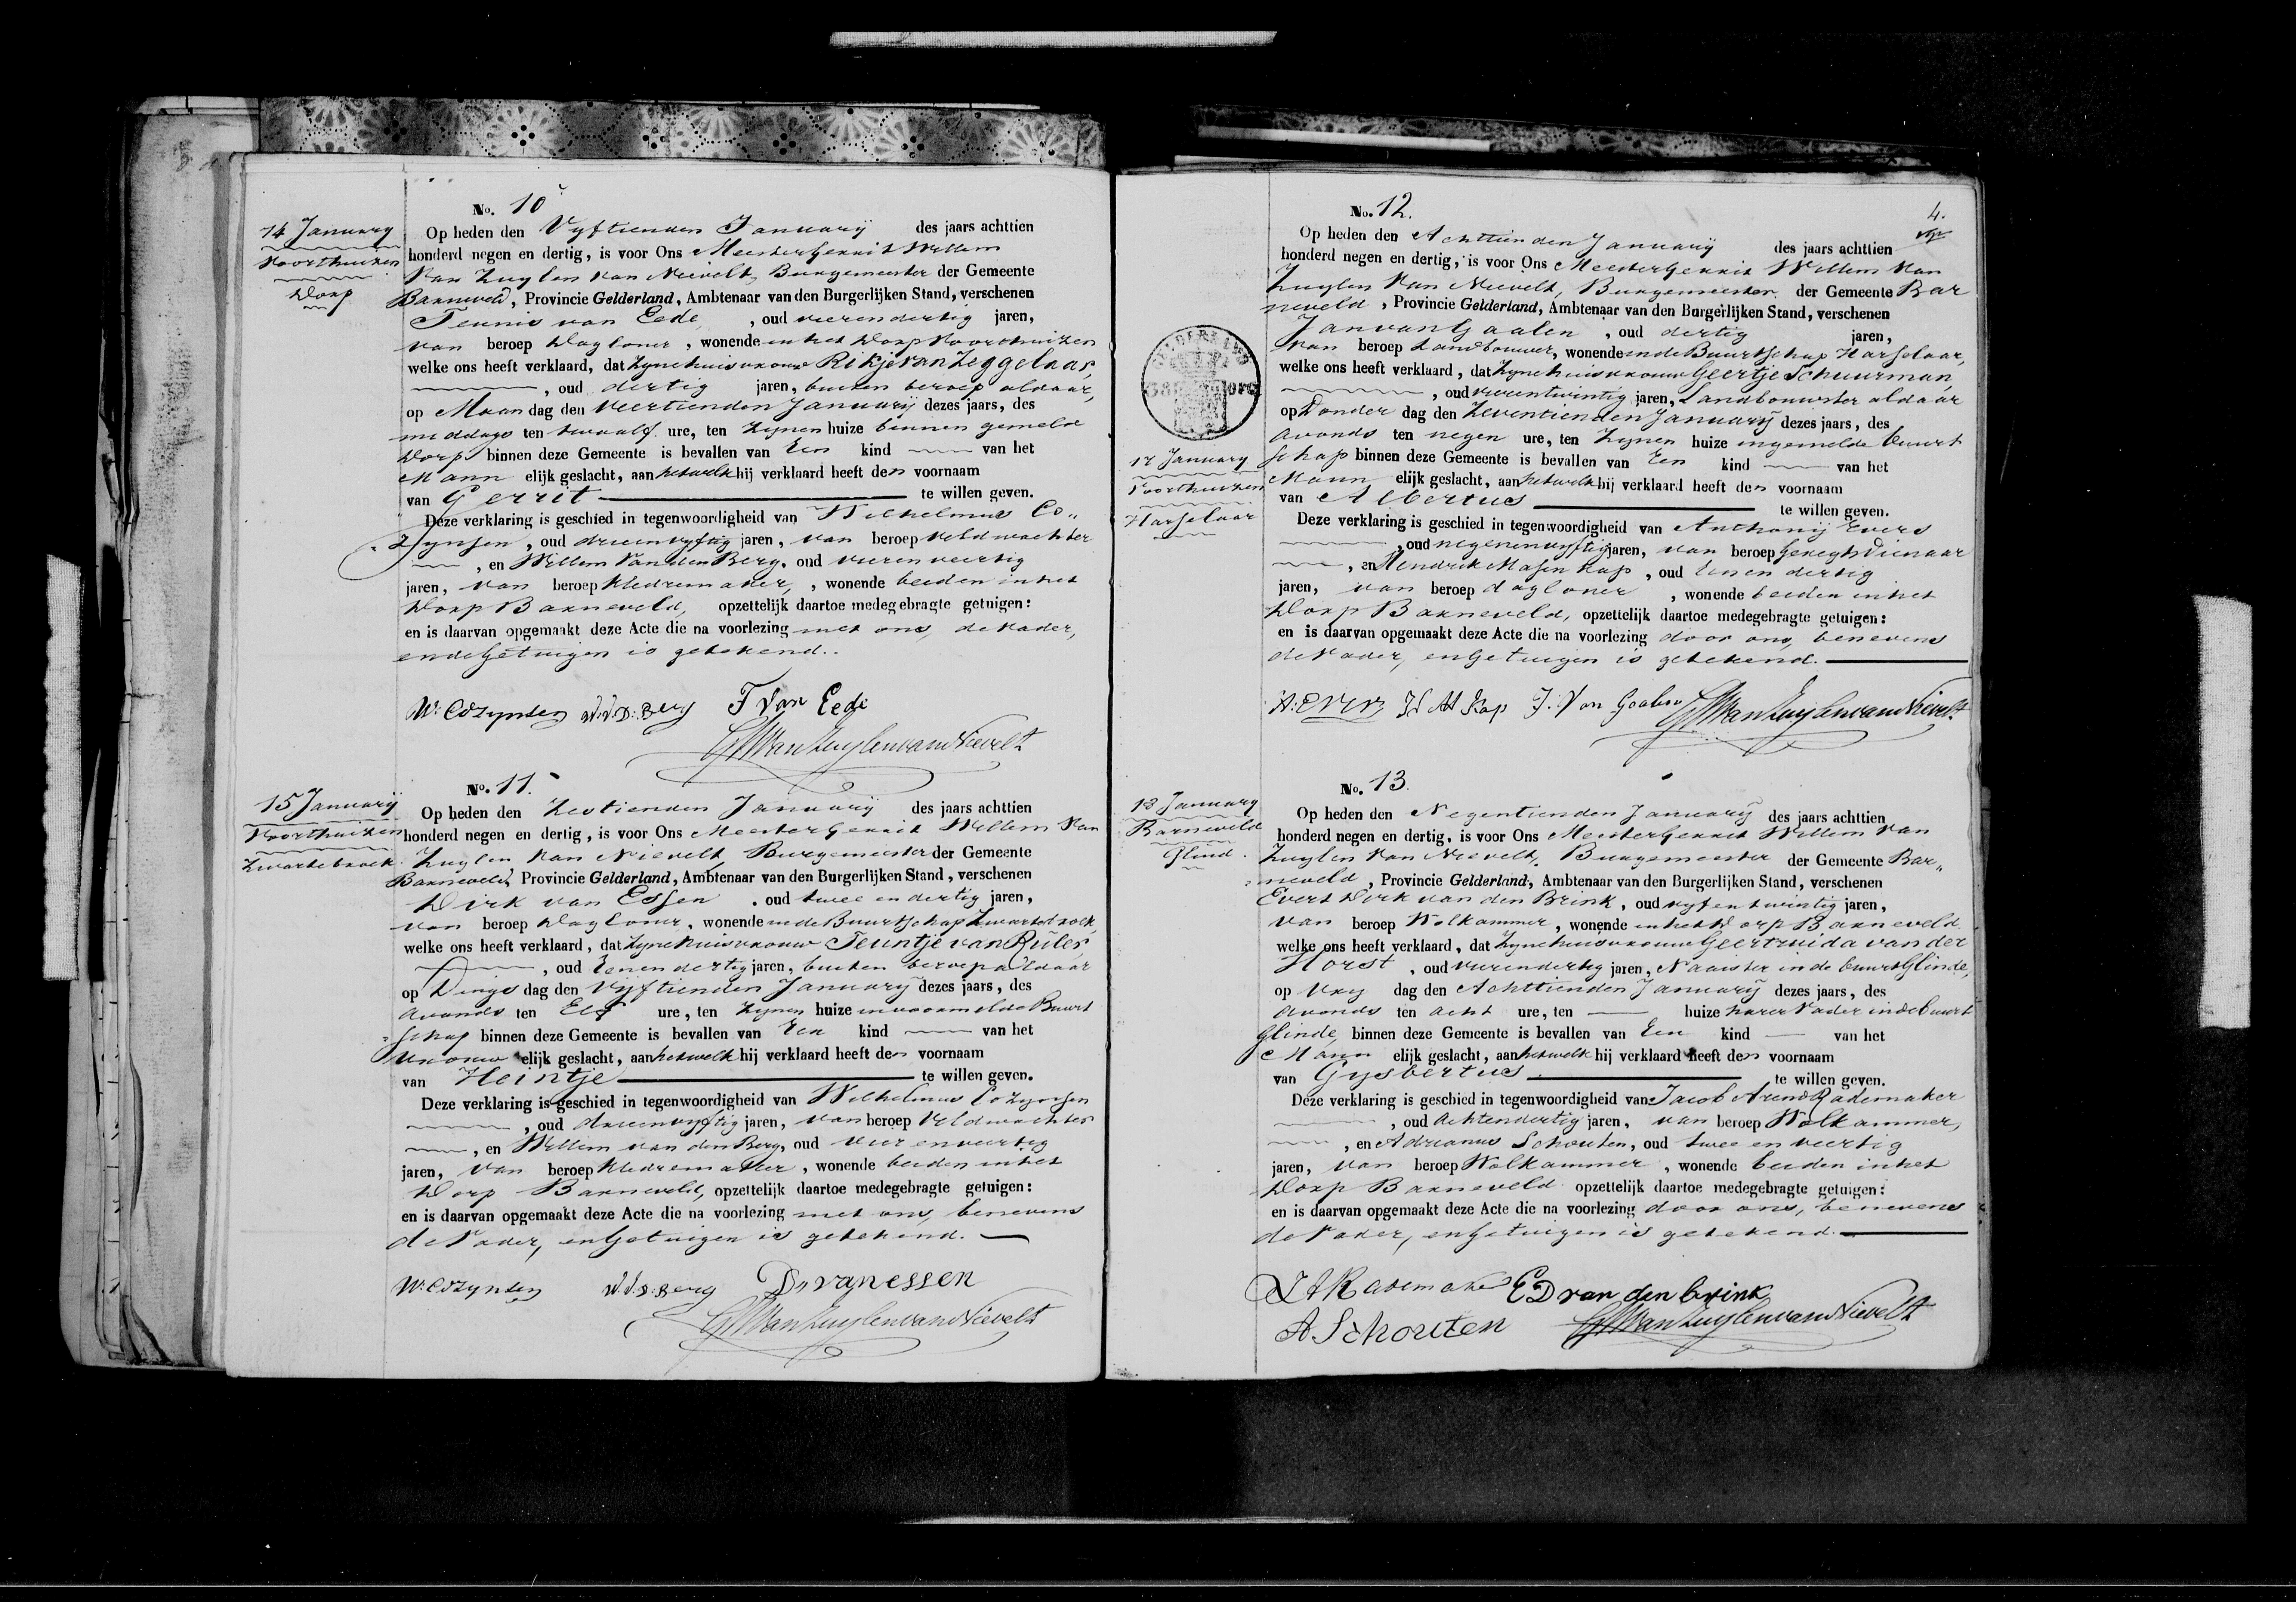 No. 10
14 January
Voorthuizen
Dorp
Op heden den Vyftienden Januarij des jaars achttien
honderd negen en dertig, is voor Ons Meester Gerrit Willem
Van Zuylen van Nievelt, Burgemeester der Gemeente
Barneveld, Provincie Gelderland, Ambtenaar van den Burgerlijken Stand, verschenen
Teunis van Eede, oud vierendertig jaren,
van beroep Dagloner, wonende in het Dorp Voorthuizen
welke ons heeft verklaard, dat zyne huisvrouw Rikje van Zeggelaar,
, oud dertig jaren, buiten beroep aldaar,
op Maan dag den Veertienden Januarij dezes jaars, des
middags ten twaalf ure, ten zynen huize binnen gemelde
Dorp binnen deze Gemeente is bevallen van Een kind van het
Mann elijk geslacht, aan hetwelk hij verklaard heeft den voornaam
van Gerrit te willen geven.
Deze verklaring is geschied in tegenwoordigheid van Wilhelmus Co„
„zynsen, oud drieenvyftig jaren, van beroep Veldwachter
, en Willem van den Berg, oud vierenveertig
jaren, van beroep kledremaker, , wonende beiden in het
Dorp Barneveld, opzettelijk daartoe medegebragte getuigen:
en is daarvan opgemaakt deze Acte die na voorlezing met ons, de Vader,
en de Getuigen is getekend.
W: Cozynsen W.V.D: Berg T Van Eede
GWVanZuylenvanNievelt
No. 11.
15 Januarij
Voorthuizen
Zwartebroek
Op heden den Zestienden Januarij des jaars achttien
honderd negen en dertig, is voor Ons Meester Gerrit Willem Van
Zuylen van Nievelt, Burgemeester der Gemeente
Barneveld, Provincie Gelderland, Ambtenaar van den Burgerlijken Stand, verschenen
Dirk van Essen, oud twee en dertig jaren,
van beroep Dagloner, wonende in de Buurtschap Zwartebroek,
welke ons heeft verklaard, dat zyne huisvrouw Teuntje van Ruler,
, oud Eenendertig jaren, buiten beroep aldaar
op Dings dag den Vyftienden January dezes jaars, des
avonds ten Elf ure, ten zynen huize in voormelde Buurt
„schap binnen deze Gemeente is bevallen van Een kind van het
Vrouw elijk geslacht, aan hetwelk hij verklaard heeft den voornaam
van Heintje te willen geven.
Deze verklaring is geschied in tegenwoordigheid van Wilhelmus Cozynsen
, oud drieenvyftig jaren, van beroep Veldwachter
, en Willem van den Berg, oud vier en veertig
jaren, van beroep kledremaker, wonende beiden in het
Dorp Barneveld, opzettelijk daartoe medegebragte getuigen:
en is daarvan opgemaakt deze Acte die na voorlezing met ons, benevens
de Vader, en Getuigen is getekend.
W: Cozynsen W.V.D: Berg D. van essen
GWVanZuylenvanNievelt
4.
No. 12.
17 January
Voorthuizen
Harselaar
Op heden den Achttienden Januarij des jaars achttien
honderd negen en dertig, is voor Ons Meester Gerrit Willem Van
Zuylen van Nievelt, Burgemeester der Gemeente Bar
neveld, Provincie Gelderland, Ambtenaar van den Burgerlijken Stand, verschenen
Jan van Gaalen, oud dertig jaren,
van beroep Landbouwer, wonende in de Buurtschap Harselaar,
welke ons heeft verklaard, dat zyne huisvrouw Geertje Schuurman,
, oud vierentwintig jaren, Landbouwster aldaar
op Donder dag den Zeventienden Januarij dezes jaars, des
avonds ten negen ure, ten zynen huize in gemelde buurt
schap binnen deze Gemeente is bevallen van Een kind van het
Mann elijk geslacht, aan hetwelk hij verklaard heeft den voornaam
van Albertus te willen geven.
Deze verklaring is geschied in tegenwoordigheid van Anthonij Evers
, oud negenenvyftig jaren, van beroep Geregtsdienaar
, en Hendrik Masen Kap, oud Eenen dertig
jaren, van beroep dagloner, wonende beiden in het
Dorp Barneveld, opzettelijk daartoe medegebragte getuigen:
en is daarvan opgemaakt deze Acte die na voorlezing door ons, benevens
de Vader, en Getuigen is getekend.
A: Evers H M Kap J. Van Gaalen GWVanZuylenvanNievelt
No. 13.
18 January
Barneveld
Glind.
Op heden den Negentienden Januarij des jaars achttien
honderd negen en dertig, is voor Ons Meester Gerrit Willem van
Zuylen van Nievelt, Burgemeester der Gemeente Bar„
„neveld, Provincie Gelderland, Ambtenaar van den Burgerlijken Stand, verschenen
Evert Dirk van den Brink, oud vyfentwintig jaren,
van beroep Wolkammer, wonende in het Dorp Barneveld
welke ons heeft verklaard, dat zyne huisvrouw Geertruida van der
Horst, oud vierendertig jaren, Naaister in de buurt Glinde,
op Vry dag den Achttienden Januarij dezes jaars, des
avonds ten acht ure, ten huize harer Vader in de buurt
Glinde, binnen deze Gemeente is bevallen van Een kind van het
Mann elijk geslacht, aan hetwelk hij verklaard heeft den voornaam
van Gysbertus te willen geven.
Deze verklaring is geschied in tegenwoordigheid van Jacob Arend Rademaker
, oud achtendertig jaren, van beroep Wolkammer,
, en Adrianus Schouten, oud twee en veertig
jaren, van beroep Wolkammer, wonende beiden in het
Dorp Barneveld opzettelijk daartoe medegebragte getuigen:
en is daarvan opgemaakt deze Acte die na voorlezing door ons, benevens
de Vader, en Getuigen is getekend.
J A Rademaker E D van den brink
A Schouten GWVanZuylenvanNievelt